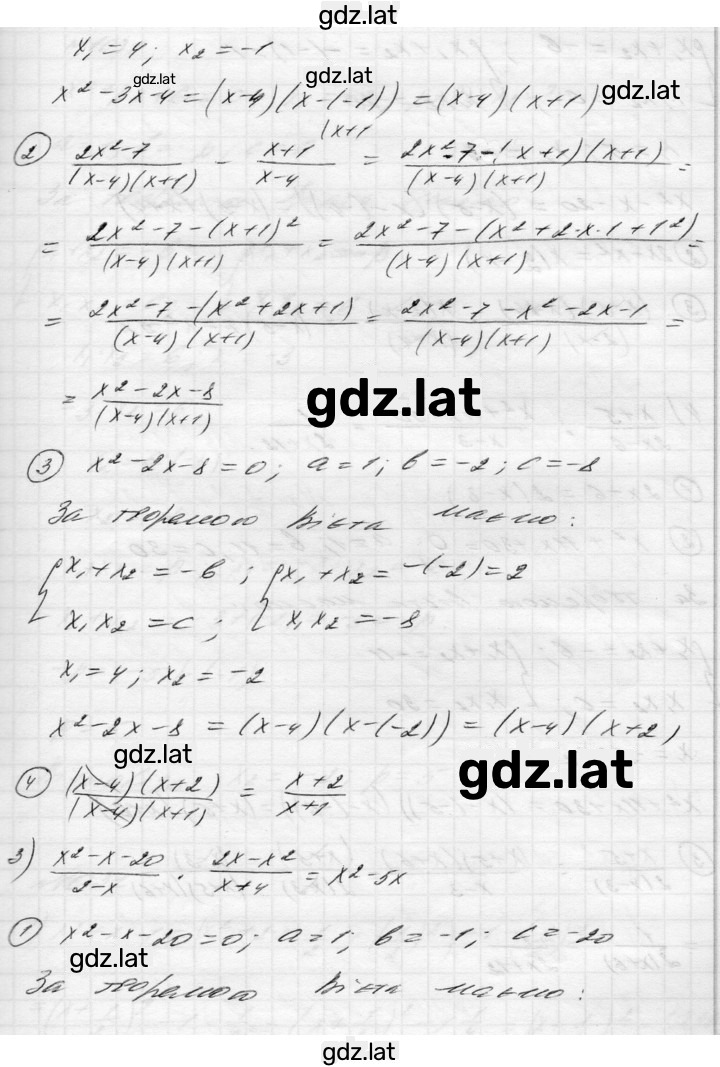 gdz.lat
x₁ = 4; x₂ = -1
gdz.lat gdz.lat
x² - 3x - 4 = (x-4)(x-(-1)) = (x-4)(x+1)
gdz.lat
(x+1
② (2x²-7)/((x-4)(x+1)) - (x+1)/(x-4) = (2x²-7-(x+1)(x+1))/((x-4)(x+1)) =
= (2x²-7-(x+1)²)/((x-4)(x+1)) = (2x²-7-(x²+2·x·1+1²))/((x-4)(x+1)) =
= (2x²-7-(x²+2x+1))/((x-4)(x+1)) = (2x²-7-x²-2x-1)/((x-4)(x+1)) =
= (x²-2x-8)/((x-4)(x+1))
gdz.lat
③ x²-2x-8=0; a=1; b=-2; c=-8
За теоремою Вієта маємо:
{x₁+x₂=-b; {x₁+x₂=-(-2)=2
x₁x₂=c; x₁x₂=-8
x₁=4; x₂=-2
x²-2x-8 = (x-4)(x-(-2)) = (x-4)(x+2)
gdz.lat
gdz.lat
④ ((x-4)(x+2))/((x-4)(x+1)) = (x+2)/(x+1)
3) (x²-x-20)/(2-x) · (2x-x²)/(x+4) = x²-5x
① x²-x-20=0; a=1; b=-1; c=-20
gdz.lat
За теоремою Вієта маємо:
gdz.lat
gdz.lat